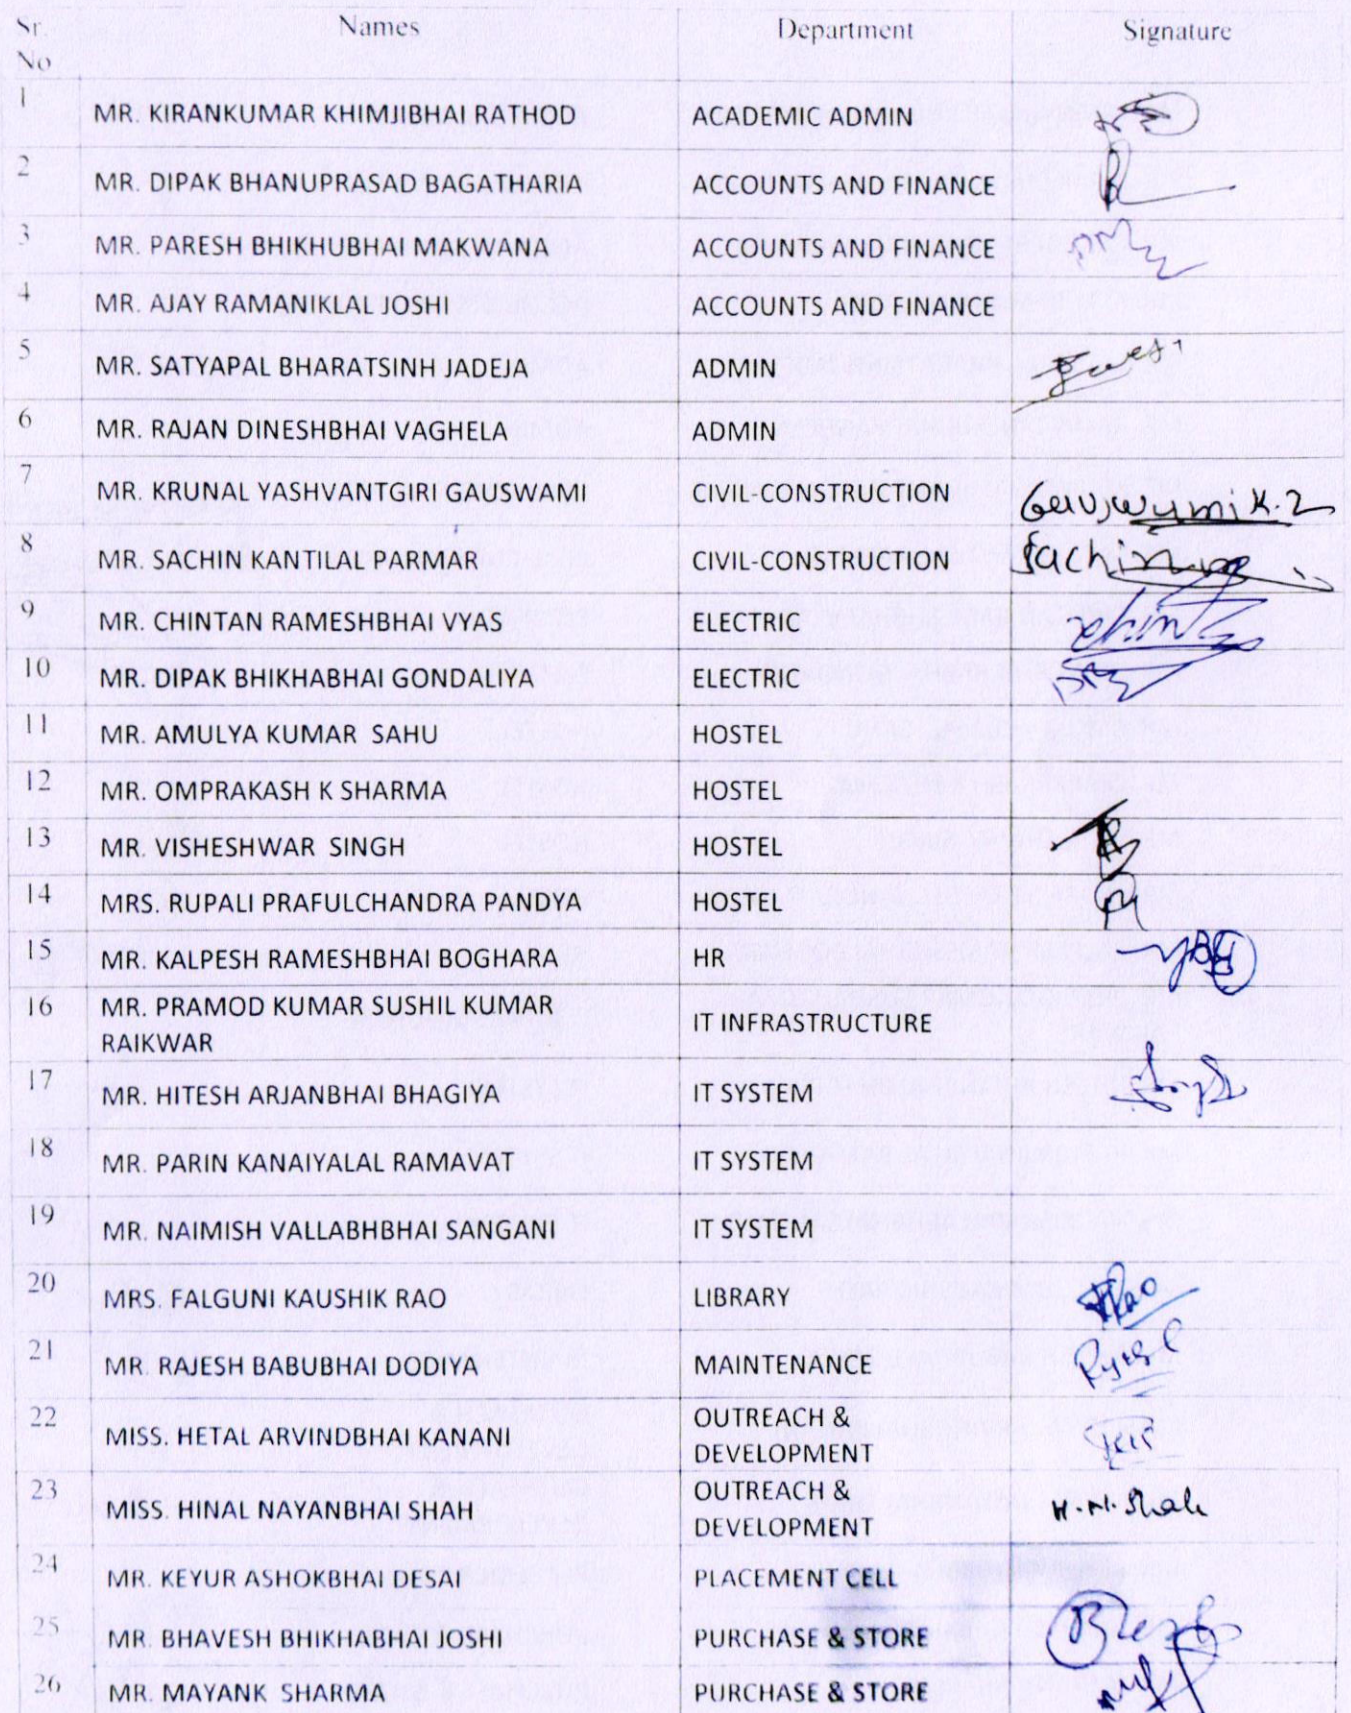 Sr. Names Department Signature
No
1 MR. KIRANKUMAR KHIMJIBHAI RATHOD ACADEMIC ADMIN
2 MR. DIPAK BHANUPRASAD BAGATHARIA ACCOUNTS AND FINANCE
3 MR. PARESH BHIKHUBHAI MAKWANA ACCOUNTS AND FINANCE
4 MR. AJAY RAMANIKLAL JOSHI ACCOUNTS AND FINANCE
5 MR. SATYAPAL BHARATSINH JADEJA ADMIN
6 MR. RAJAN DINESHBHAI VAGHELA ADMIN
7 MR. KRUNAL YASHVANTGIRI GAUSWAMI CIVIL-CONSTRUCTION
8 MR. SACHIN KANTILAL PARMAR CIVIL-CONSTRUCTION Sachin
9 MR. CHINTAN RAMESHBHAI VYAS ELECTRIC
10 MR. DIPAK BHIKHABHAI GONDALIYA ELECTRIC
11 MR. AMULYA KUMAR SAHU HOSTEL
12 MR. OMPRAKASH K SHARMA HOSTEL
13 MR. VISHESHWAR SINGH HOSTEL
14 MRS. RUPALI PRAFULCHANDRA PANDYA HOSTEL
15 MR. KALPESH RAMESHBHAI BOGHARA HR
16 MR. PRAMOD KUMAR SUSHIL KUMAR IT INFRASTRUCTURE
RAIKWAR
17 MR. HITESH ARJANBHAI BHAGIYA IT SYSTEM
18 MR. PARIN KANAIYALAL RAMAVAT IT SYSTEM
19 MR. NAIMISH VALLABHBHAI SANGANI IT SYSTEM
20 MRS. FALGUNI KAUSHIK RAO LIBRARY
21 MR. RAJESH BABUBHAI DODIYA MAINTENANCE
22 MISS. HETAL ARVINDBHAI KANANI OUTREACH &
DEVELOPMENT
23 MISS. HINAL NAYANBHAI SHAH OUTREACH & H.N.Shah
DEVELOPMENT
24 MR. KEYUR ASHOKBHAI DESAI PLACEMENT CELL
25 MR. BHAVESH BHIKHABHAI JOSHI PURCHASE & STORE
26 MR. MAYANK SHARMA PURCHASE & STORE